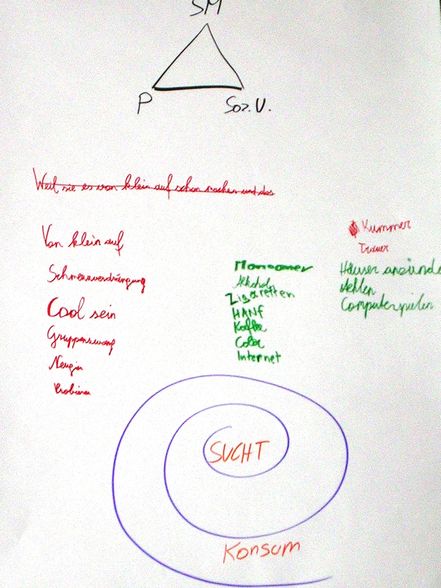 SM
P
Soz. U.
Weil sie es von klein auf schon machen und das
Von klein auf
Schmerzverdrängung
Cool sein
Gruppenzwang
Neugier
Probieren
Alkohol
Zigaretten
HANF
Kaffee
Cola
Internet
Kummer
Trauer
Häuser anzünde
stehlen
Computerspielen
SUCHT
Konsum